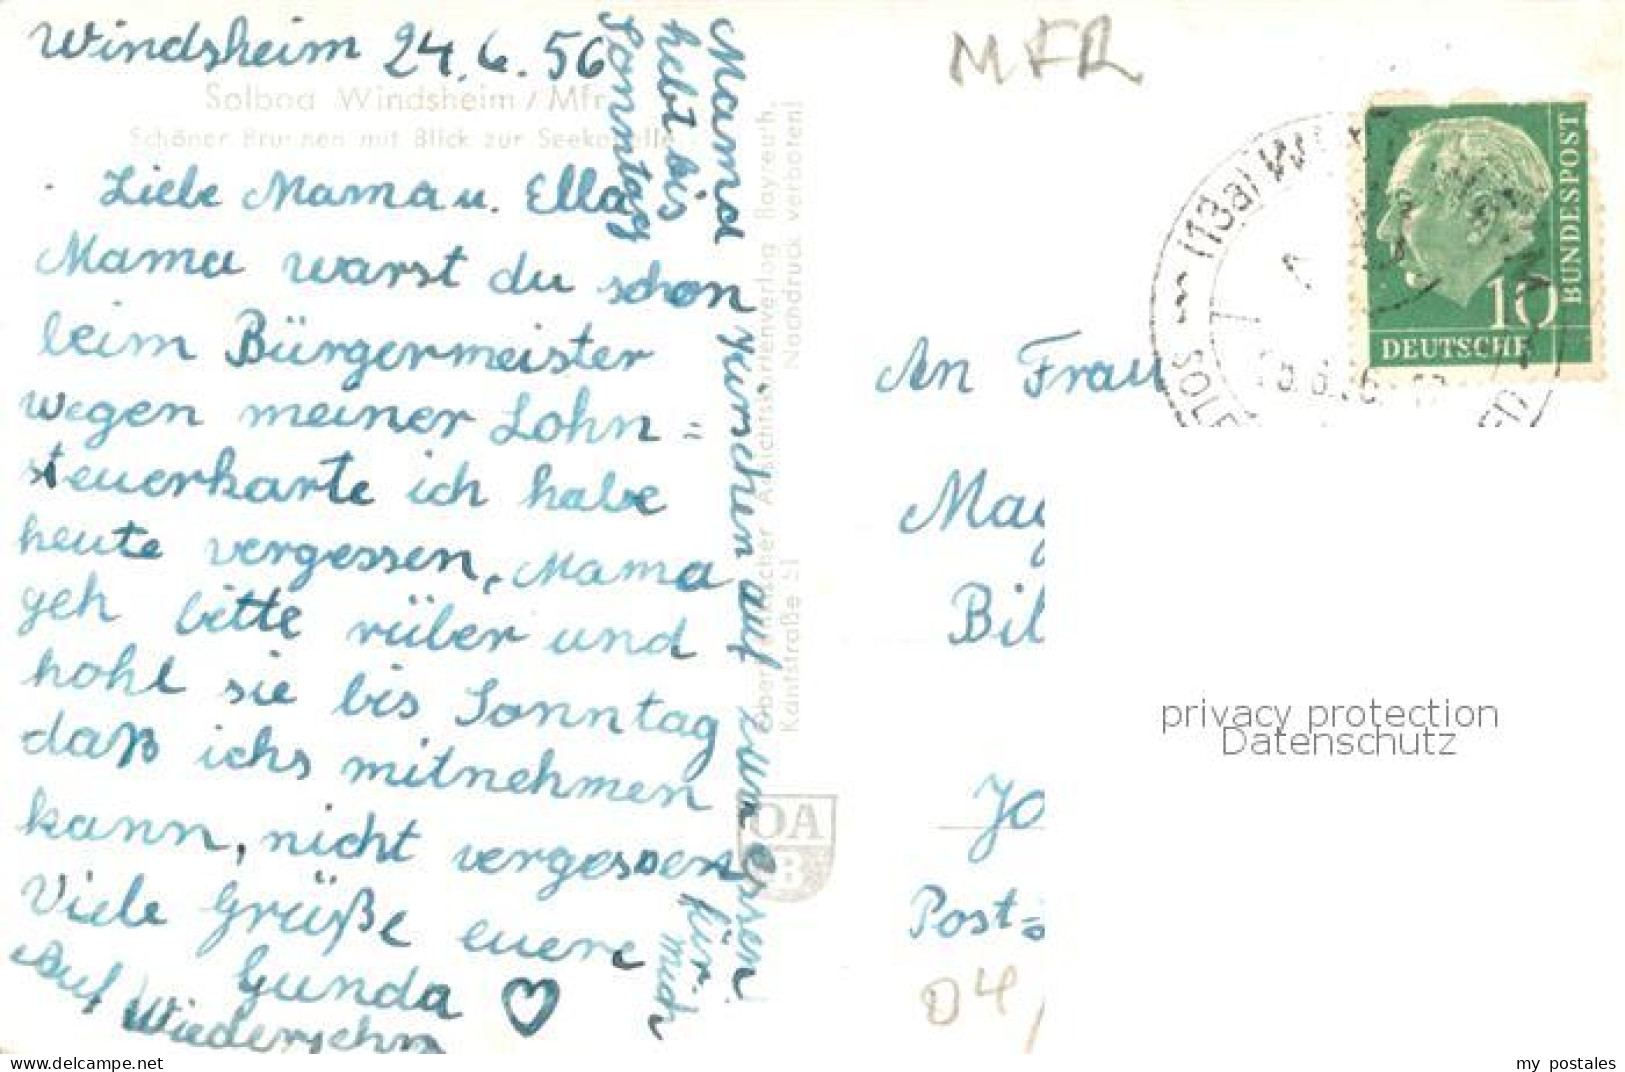 Windsheim 24.6.56
Solbad Windsheim / Mfr.
Schöner Brunnen mit Blick zur Seekapelle
Liebe Mama u. Ella
Mama warst du schon
beim Bürgermeister
wegen meiner Lohn=
steuerkarte ich habe
heute vergessen, Mama
geh bitte rüber und
hohl sie bis Sonntag
daß ichs mitnehmen
kann, nicht vergessen
Viele Grüße euere
Gunda
Auf Wiedersehn
Mama hebt bis
Sonntag
auf zum essen
für mich
Ansichtskartenverlag Bayreuth,
Kantstraße 51
Nachdruck verboten!
OA
B
MFR
(13a)
BUNDESPOST
10
DEUTSCHE
An Frau
Mag
Bil
Jo
Post=
04/
privacy protection
Datenschutz
my postales